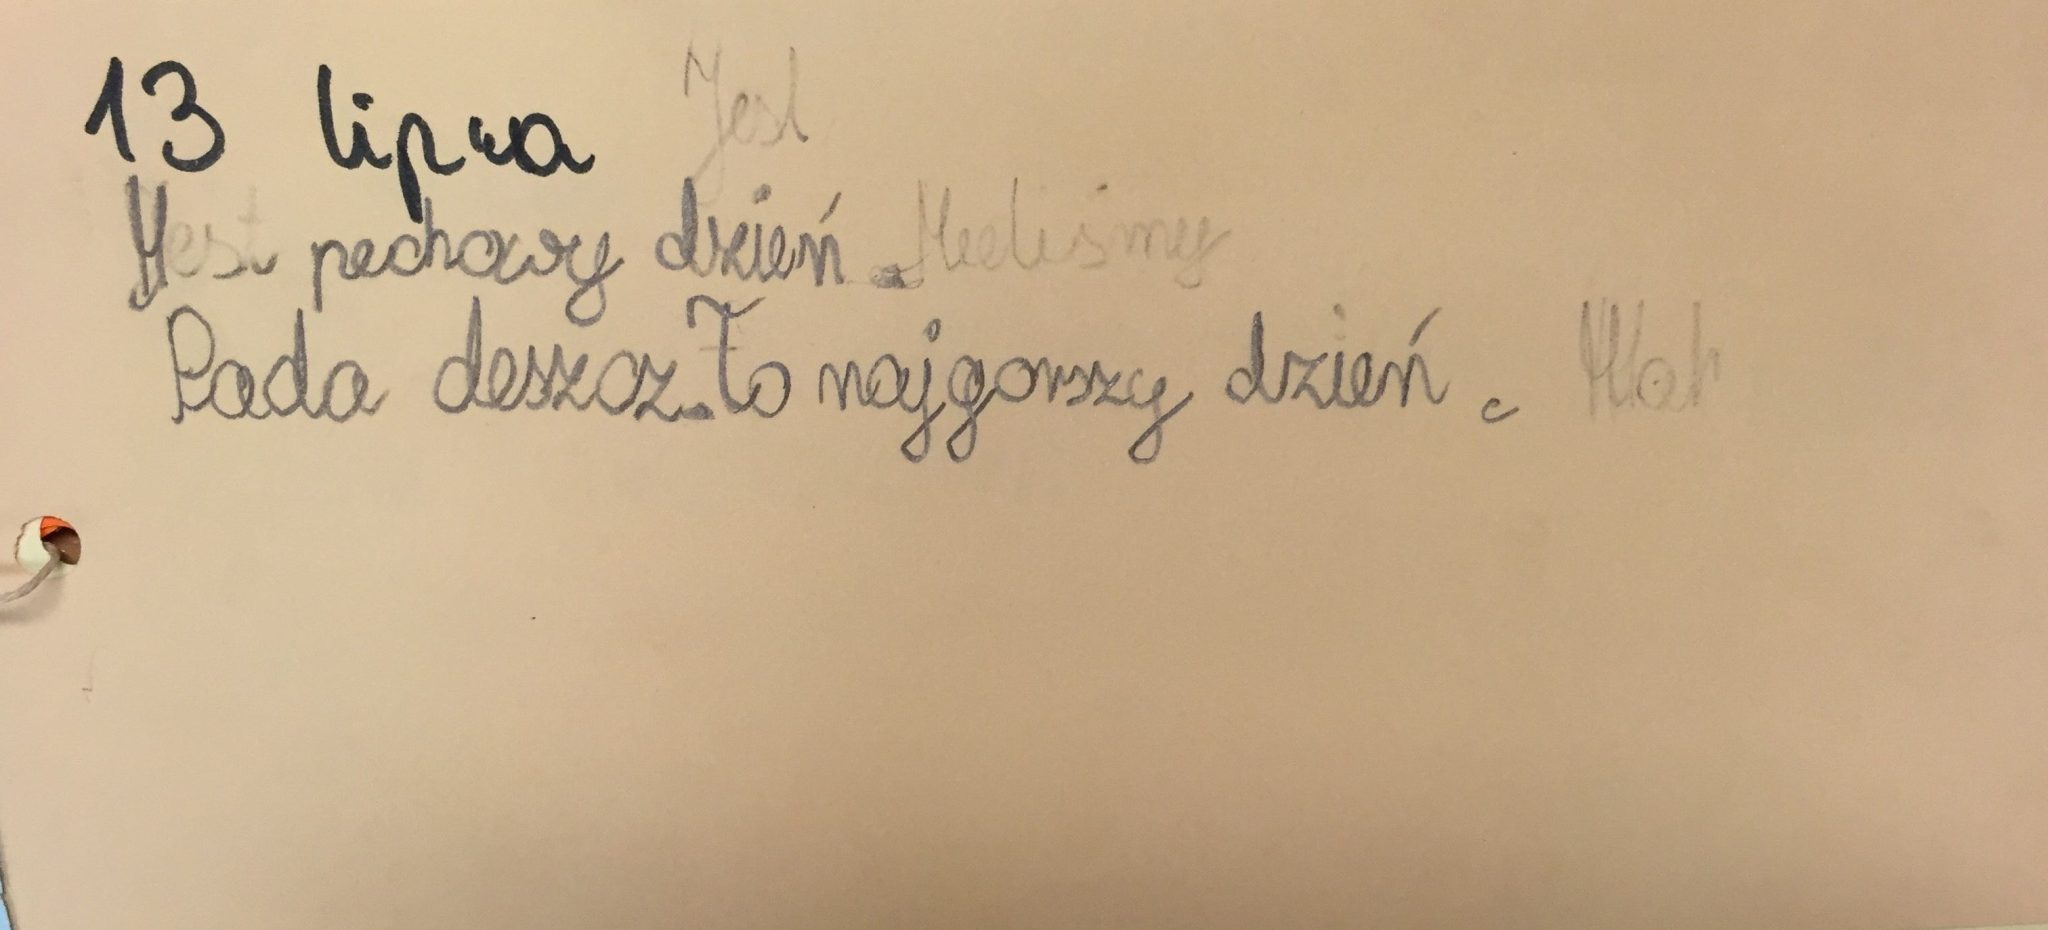 13 lipca Jest
pechowy dzień. Mieliśmy
Pada deszcz. To najgorszy dzień.